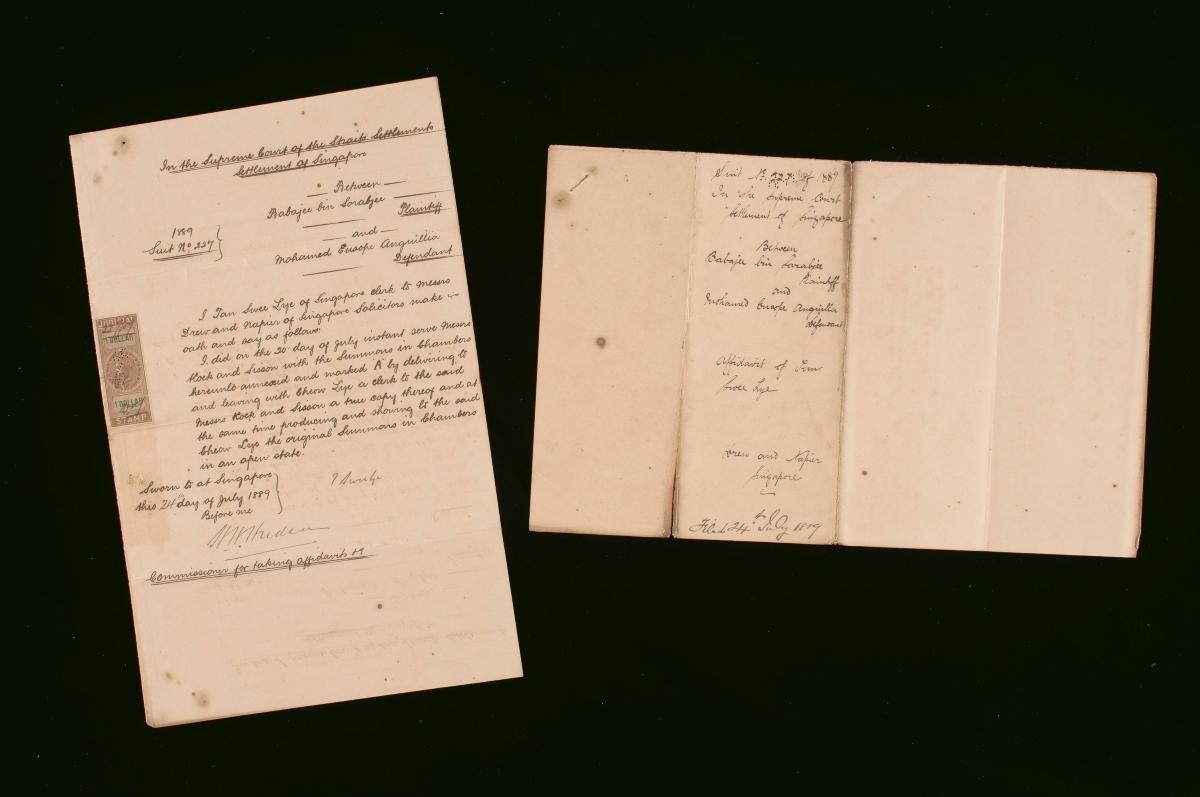 In the Supreme Court of the Straits Settlements
Settlement of Singapore
Between
Babajee bin Sorabjee
Plaintiff
1889
Suit No 227
and
Mohamed Eusope Anguillia
Defendant
I Tan Swee Lye of Singapore clerk to Messrs
Drew and Napier of Singapore Solicitors make
oath and say as follows:
I did on the 20 day of July instant serve Messrs
Rock and Sisson with the Summons in Chambers
hereunto annexed and marked A by delivering to
and leaving with Cheow Lye a clerk to the said
Messrs Rock and Sisson a true copy thereof and at
the same time producing and showing to the said
Cheow Lye the original Summons in Chambers
in an open state.
Sworn to at Singapore
this 24th day of July 1889
Before me
Commissioner for taking affidavits &c
1 DOLLAR
1 DOLLAR
STAMP
Suit No. 227 of 1889
In the Supreme Court
Settlement of Singapore
Between
Babajee bin Sorabjee
Plaintiff
and
Mohamed Eusope Anguillia
Defendant
Affidavit of Tan
Swee Lye
Drew and Napier
Singapore
Filed 24th July 1889